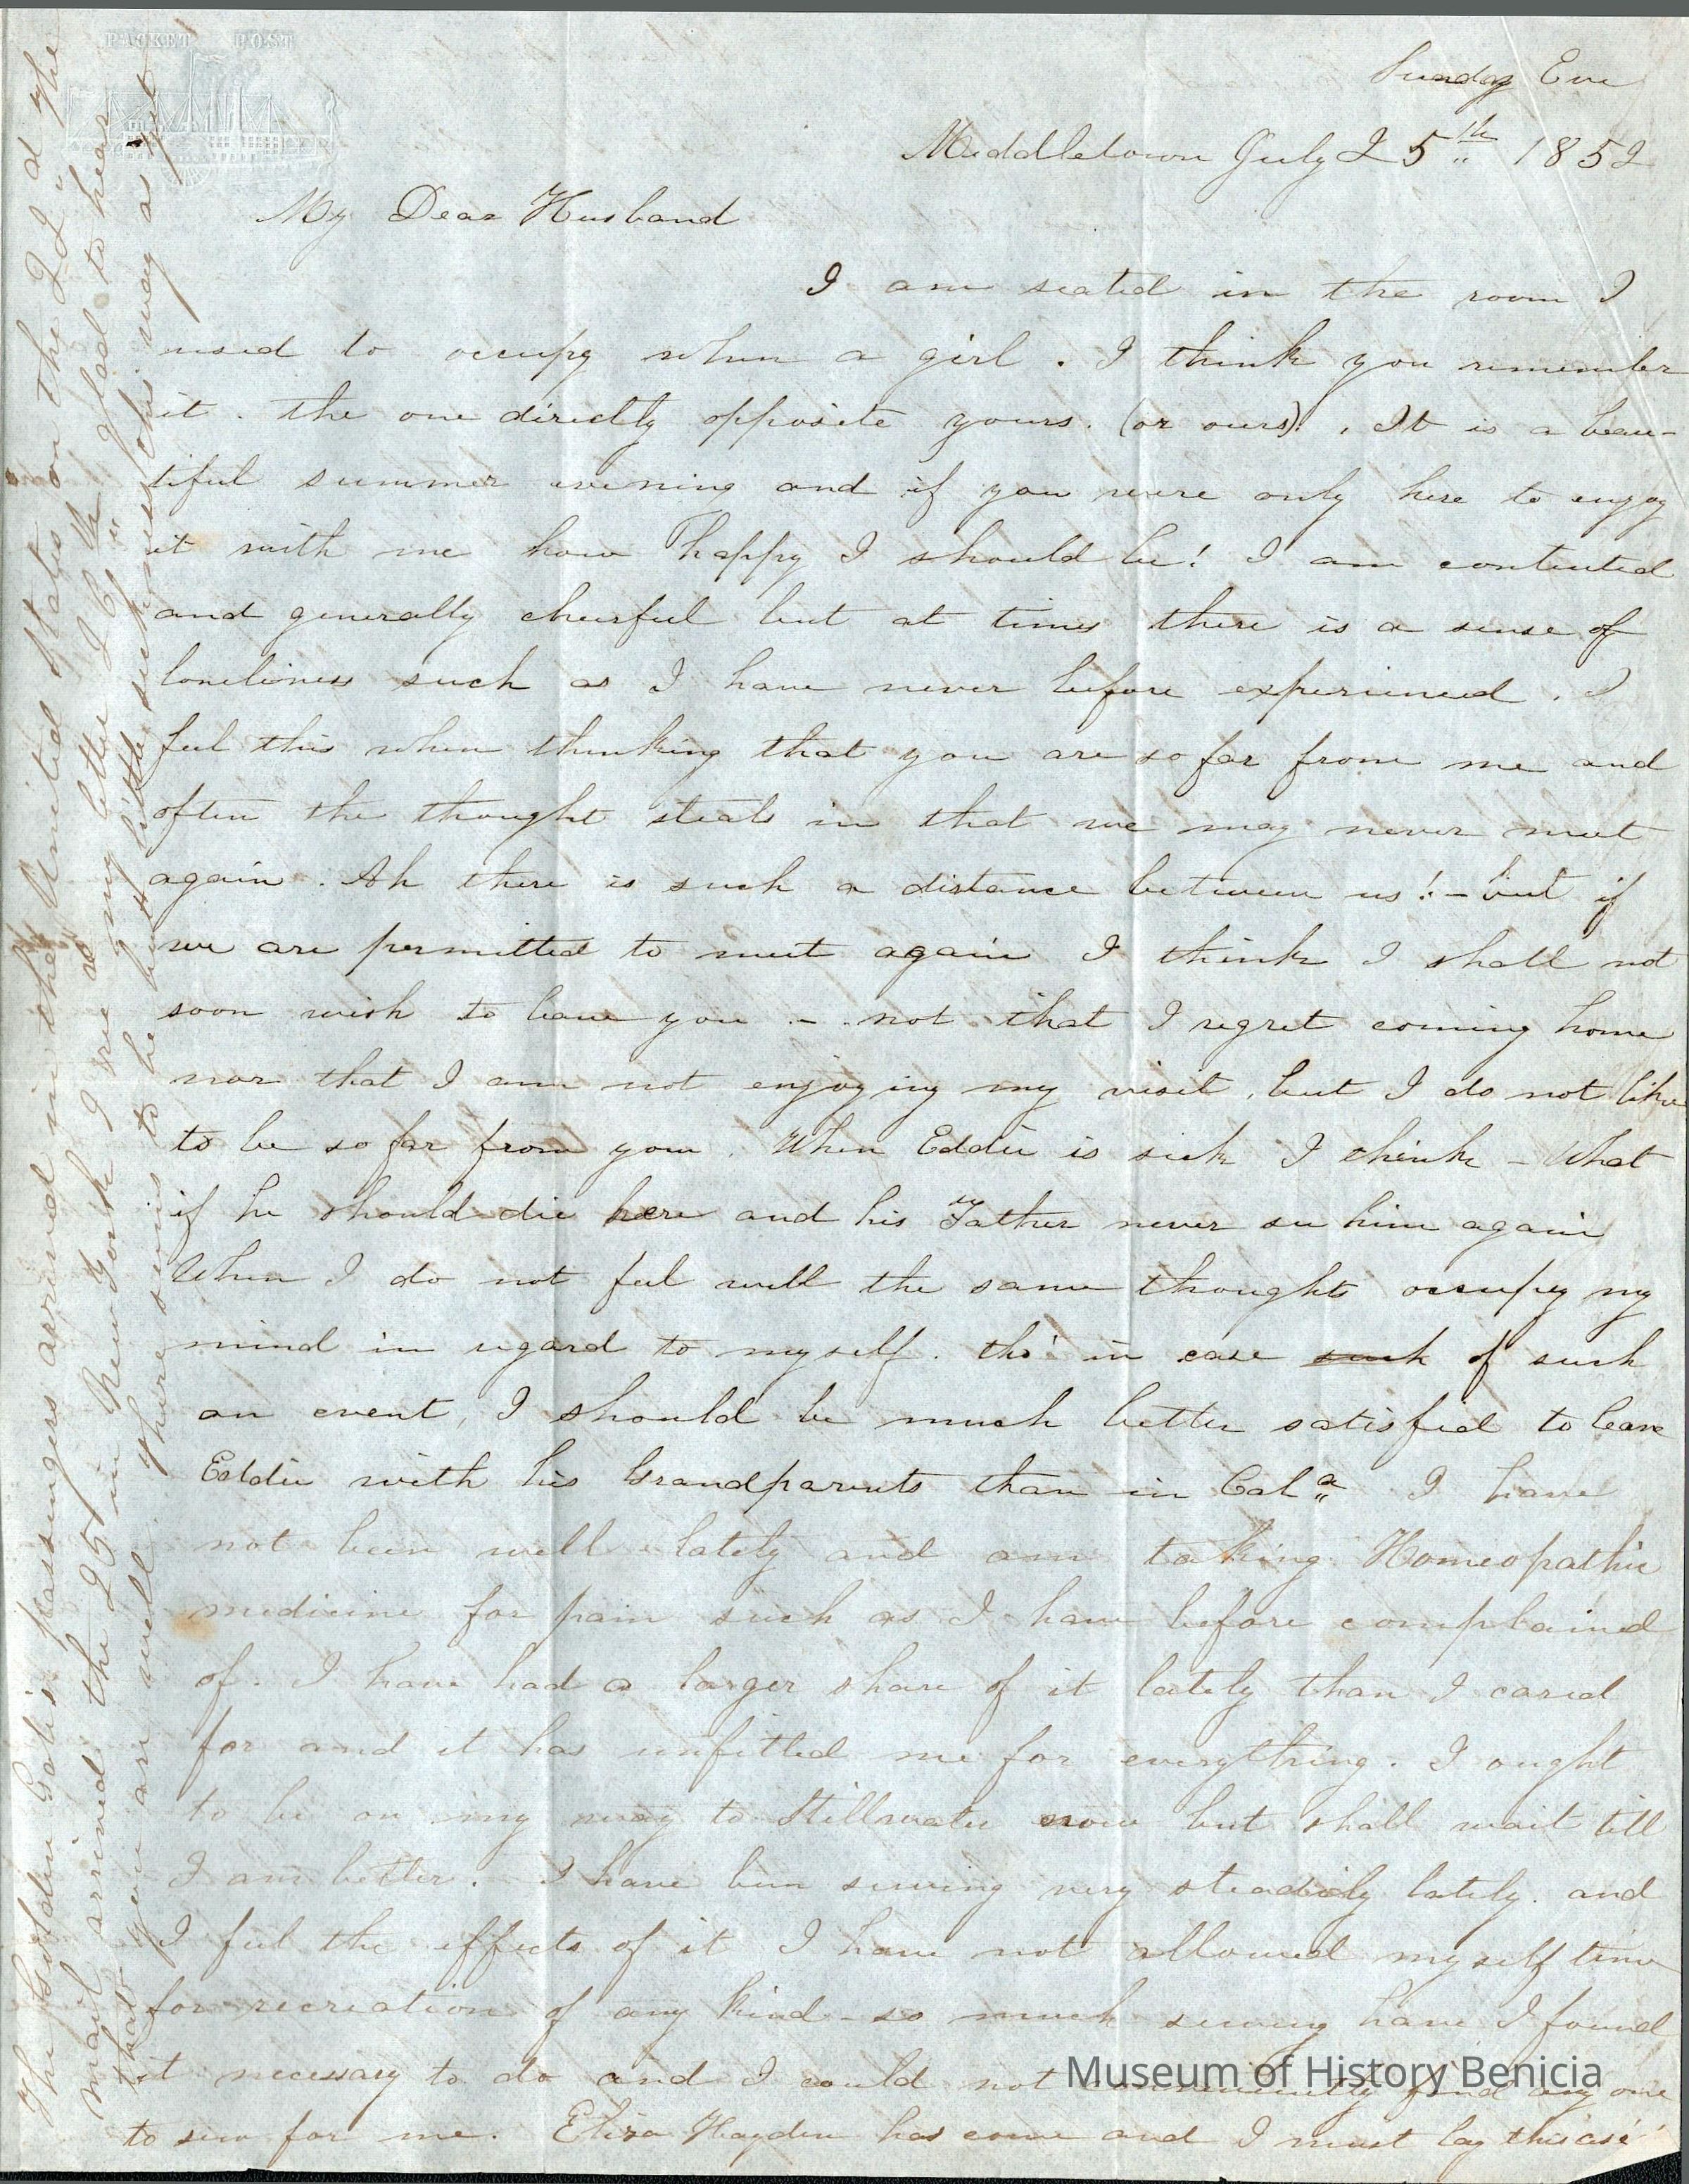 PACKET POST
Sunday Eve
Middletown July 25th 1852
My Dear Husband
I am seated in the room I
used to occupy when a girl. I think you remember
it. the one directly opposite yours. (or ours). It is a beau-
tiful summer evening and if you were only here to enjoy
it with me how happy I should be! I am contented
and generally cheerful but at times there is a sense of
loneliness such as I have never before experienced. I
feel this when thinking that you are so far from me and
often the thought steals in that we may never meet
again. Ah there is such a distance between us! - but if
we are permitted to meet again I think I shall not
soon wish to leave you - not that I regret coming home
nor that I am not enjoying my visit, but I do not like
to be so far from you. When Eddie is sick I think - What
if he should die here and his Father never see him again
When I do not feel well the same thoughts occupy my
mind in regard to myself. tho' in case such of such
an event, I should be much better satisfied to leave
Eddie with his Grandparents than in Cala I have
not been well lately and am taking Homeopathic
medicine for pain such as I have before complained
of. I have had a larger share of it lately than I cared
for and it has unfitted me for everything. I ought
to be on my way to Stillwater now but shall wait till
I am better. I have been sewing very steadily lately. and
I feel the effects of it I have not allowed myself time
for recreation of any kind - so much sewing have I found
it necessary to do and I could not conveniently find any one
to sew for me. Eliza Hayden has come and I must lay this asi
The Golden Gate's passengers arrived in the United States on the 22d The
mail arrived the 25 in New York I rec'd my letter 26th Glad to hear
that you are well. There seems to be but little sickness this way as yet
Museum of History Benicia